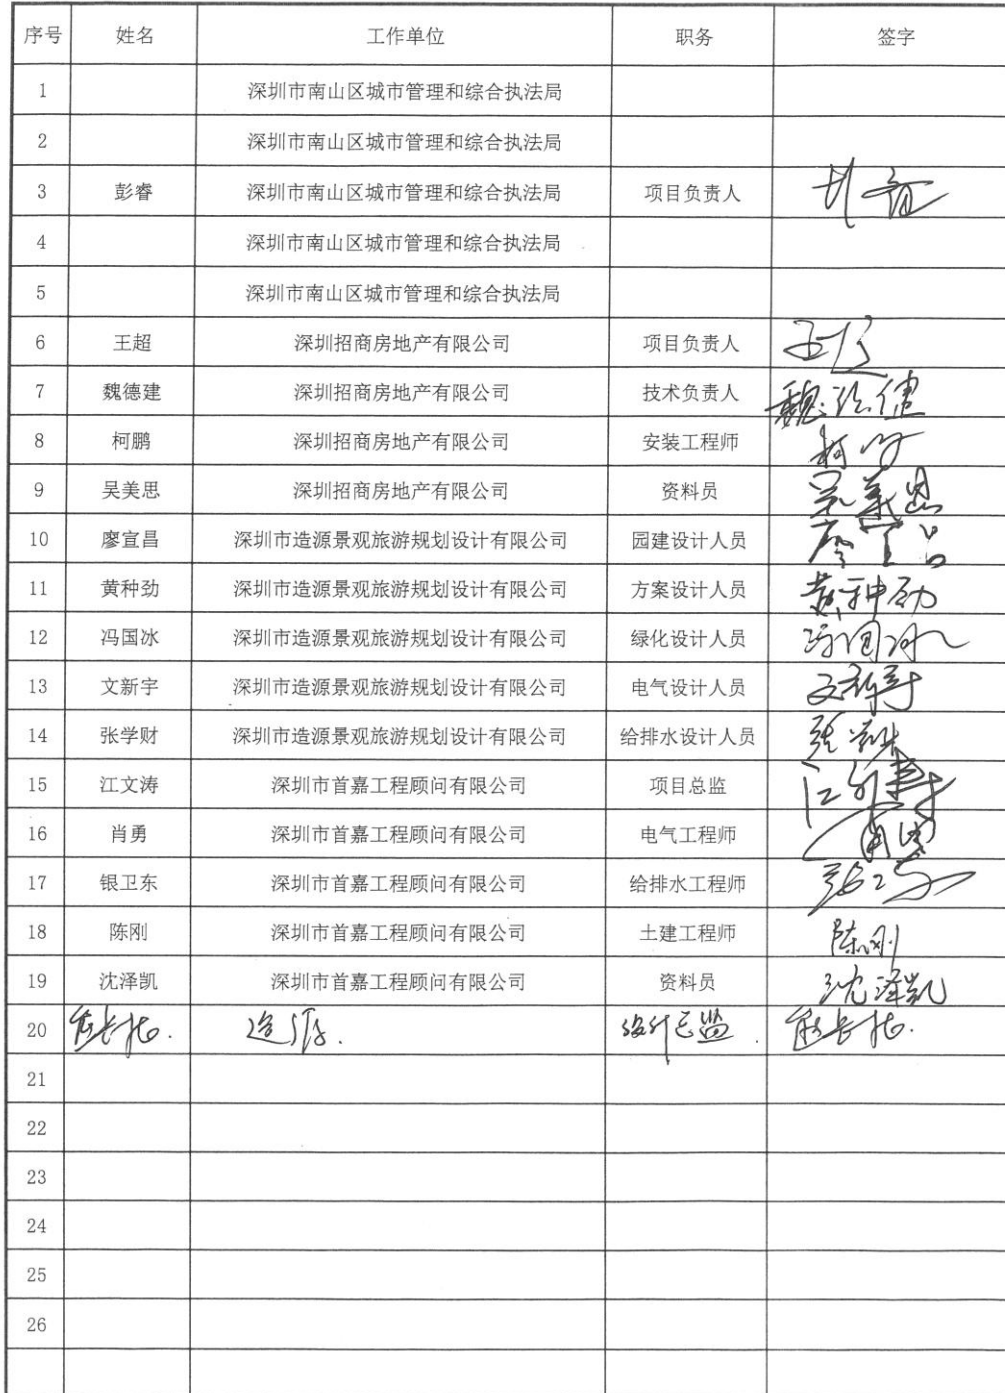 序号 姓名 工作单位 职务 签字
1 深圳市南山区城市管理和综合执法局
2 深圳市南山区城市管理和综合执法局
3 彭睿 深圳市南山区城市管理和综合执法局 项目负责人
4 深圳市南山区城市管理和综合执法局
5 深圳市南山区城市管理和综合执法局
6 王超 深圳招商房地产有限公司 项目负责人 王超
7 魏德建 深圳招商房地产有限公司 技术负责人 魏德健
8 柯鹏 深圳招商房地产有限公司 安装工程师 柯鹏
9 吴美思 深圳招商房地产有限公司 资料员 吴美思
10 廖宣昌 深圳市造源景观旅游规划设计有限公司 园建设计人员 廖宣昌
11 黄种劲 深圳市造源景观旅游规划设计有限公司 方案设计人员 黄种劲
12 冯国冰 深圳市造源景观旅游规划设计有限公司 绿化设计人员 冯国冰
13 文新宇 深圳市造源景观旅游规划设计有限公司 电气设计人员 文新宇
14 张学财 深圳市造源景观旅游规划设计有限公司 给排水设计人员 张学财
15 江文涛 深圳市首嘉工程顾问有限公司 项目总监 江文涛
16 肖勇 深圳市首嘉工程顾问有限公司 电气工程师 肖勇
17 银卫东 深圳市首嘉工程顾问有限公司 给排水工程师
18 陈刚 深圳市首嘉工程顾问有限公司 土建工程师 陈刚
19 沈泽凯 深圳市首嘉工程顾问有限公司 资料员 沈泽凯
20 造源. 设计总监.
21
22
23
24
25
26